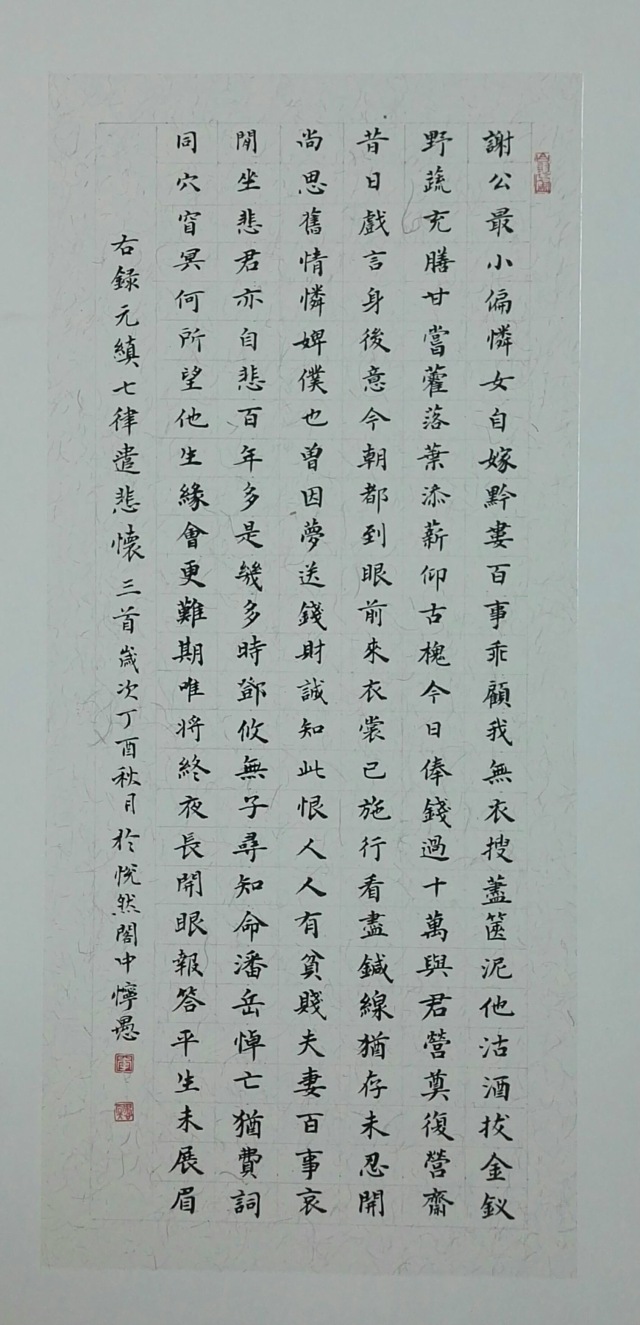 謝公最小偏憐女自嫁黔婁百事乖顧我無衣搜藎篋泥他沽酒拔金釵
野蔬充膳甘嘗藿落葉添薪仰古槐今日俸錢過十萬與君營奠復營齋
昔日戲言身後意今朝都到眼前來衣裳已施行看盡鍼線猶存未忍開
尚思舊情憐婢僕也曾因夢送錢財誠知此恨人人有貧賤夫妻百事哀
閑坐悲君亦自悲百年多是幾多時鄧攸無子尋知命潘岳悼亡猶費詞
同穴窅冥何所望他生緣會更難期唯將終夜長開眼報答平生未展眉
右録元縝七律遣悲懷三首歲次丁酉秋月於悦然閣中懧愚